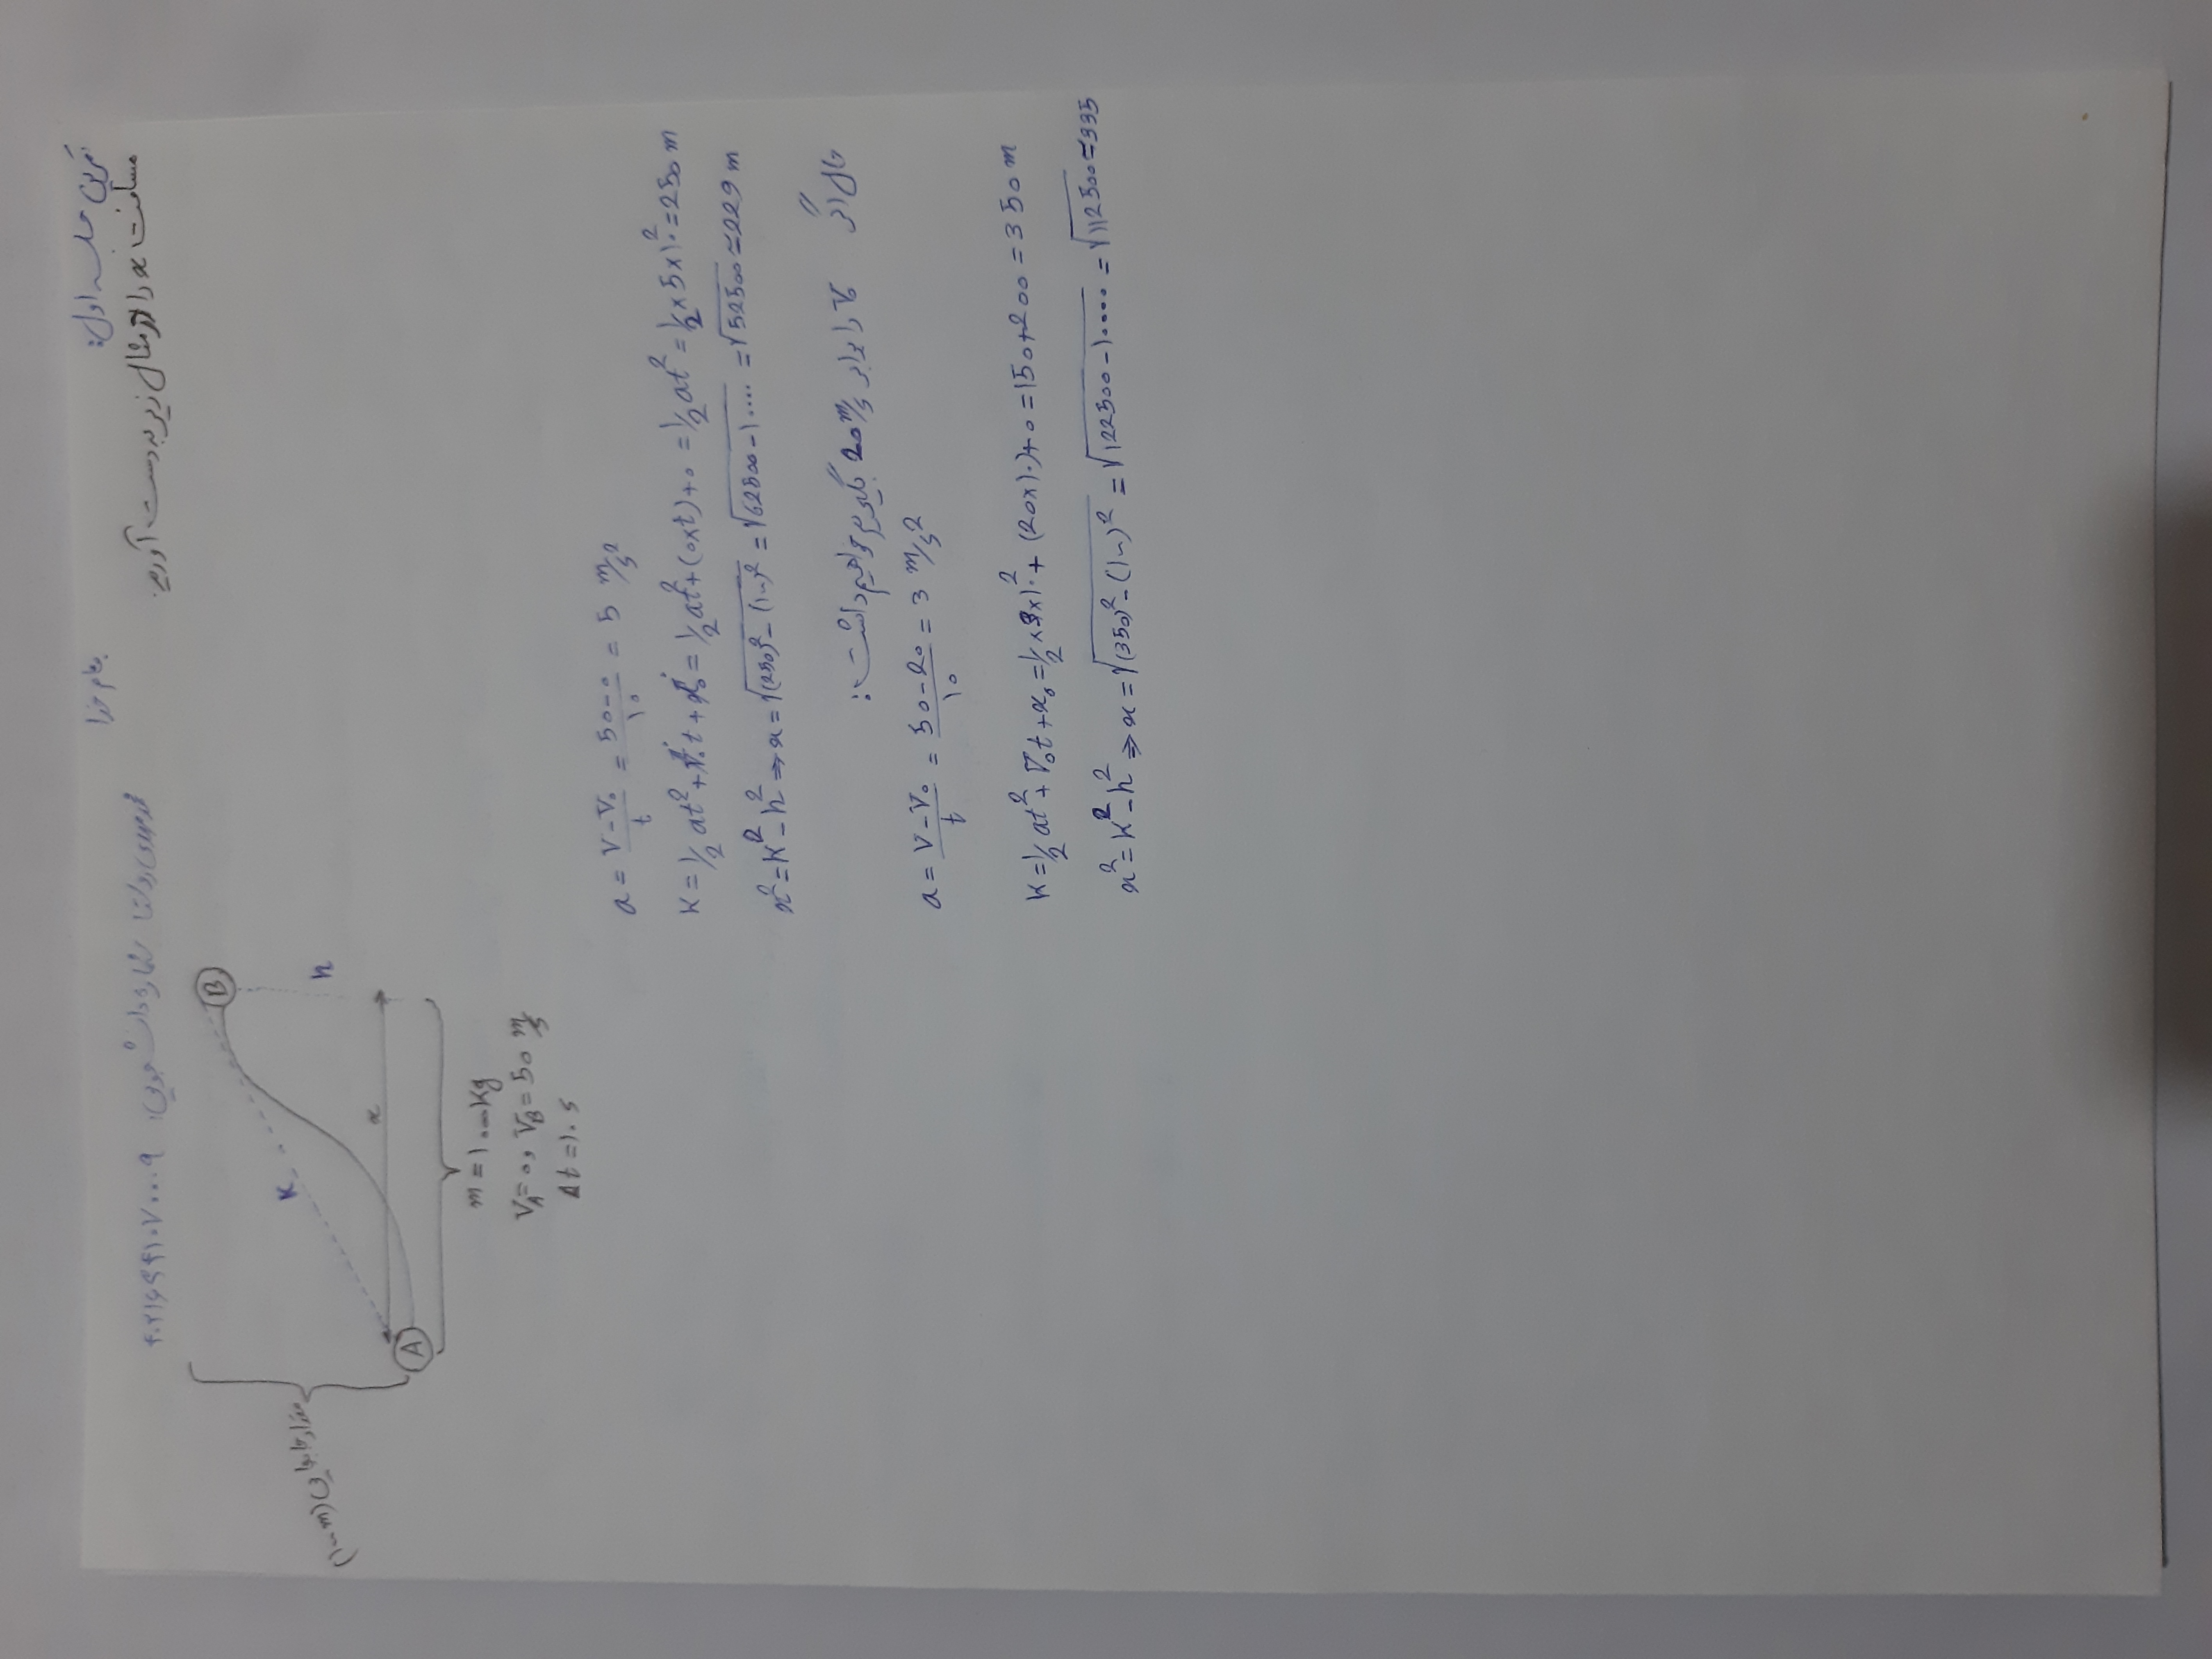 تمرین جلسه اول:
بنام خدا
مسافت x را در مثال زیر به دست آورید.
محمدمهدی شماره دانشجویی: ۴۰۲۱۶۴۴۱۰۷۰۰۰۹
B
K
h
مقدار جابجایی (۱۰۰ m)
x
A
m = ۱۰۰۰ Kg
V_A = 0, V_B = 50 m/s
Δt = ۱۰ s
a = (V - V₀)/t = (50 - 0)/10 = 5 m/s²
K = 1/2 at² + V₀t + x₀ = 1/2 at² + (0×t) + 0 = 1/2 at² = 1/2 × 5 × ۱۰² = 250 m
x² = K² - h² ⇒ x = √((250)² - (۱۰۰)²) = √(62500 - ۱۰۰۰۰) = √52500 ≃ 229 m
حال اگر V₀ را برابر 20 m/s بگیریم خواهیم داشت:
a = (V - V₀)/t = (50 - 20)/10 = 3 m/s²
K = 1/2 at² + V₀t + x₀ = 1/2 × 3 × ۱۰² + (20 × ۱۰) + 0 = 150 + 200 = 350 m
x² = K² - h² ⇒ x = √((350)² - (۱۰۰)²) = √(122500 - 10000) = √112500 ≃ 335